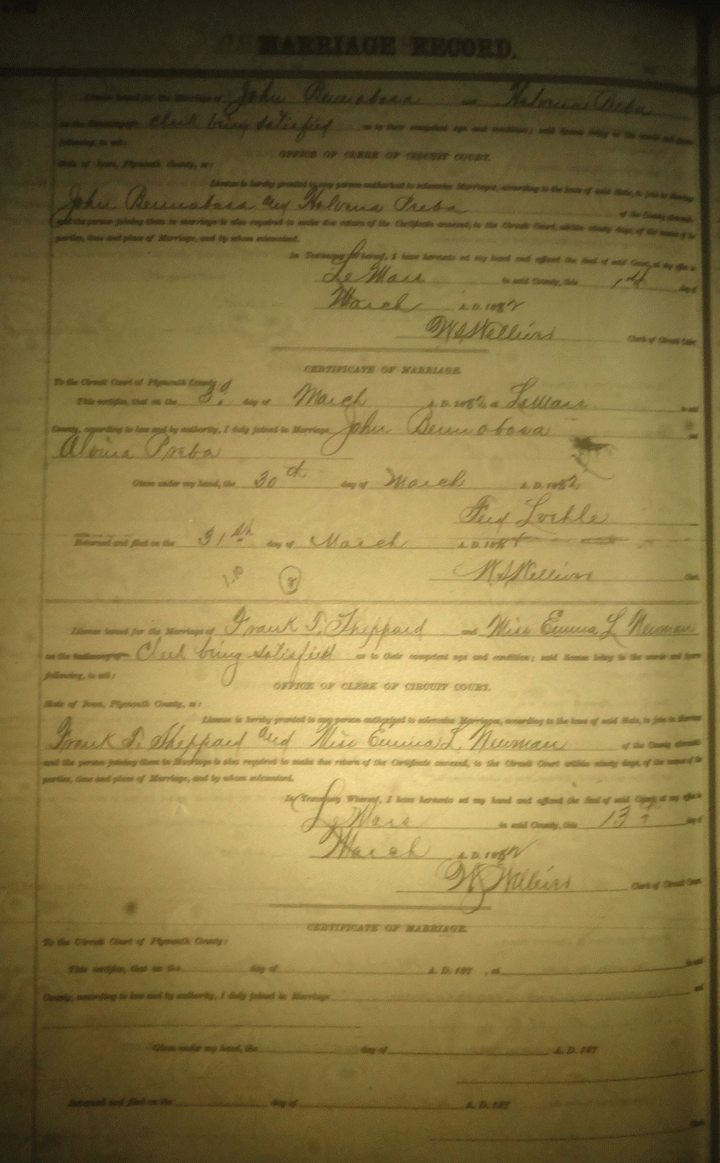 MARRIAGE RECORD.
License issued for the Marriage of John Bennobosa and Halvina Preba
on the testimony of Clerk being satisfied as to their competent age and condition; said license being in the words and figures
following, to wit:
OFFICE OF CLERK OF CIRCUIT COURT.
State of Iowa, Plymouth County, ss:
License is hereby granted to any person authorized to solemnize Marriages, according to the laws of said State, to join in Marriage
John Bennobosa and Halvina Preba of the County aforesaid
and the person joining them in marriage is also required to make due return of the Certificate annexed, to the Circuit Court, within ninety days, of the names of the
parties, time and place of Marriage, and by whom solemnized.
In Testimony Whereof, I have hereunto set my hand and affixed the Seal of said Court, at my office in
Le Mars in said County, this 1st day of
March A. D. 1882
Clerk of Circuit Court.
CERTIFICATE OF MARRIAGE.
To the Circuit Court of Plymouth County:
This certifies, that on the 3d day of March A. D. 1882, at Lemars in said
County, according to law and by authority, I duly joined in Marriage John Bennobosa and
Alvina Preba
Given under my hand, the 30th day of March A. D. 1882
Returned and filed on the 31st day of March A. D. 188
Clerk.
License issued for the Marriage of Frank T. Sheppard and Miss Emma L. Newman
on the testimony of Clerk being satisfied as to their competent age and condition; said license being in the words and figures
following, to wit:
OFFICE OF CLERK OF CIRCUIT COURT.
State of Iowa, Plymouth County, ss:
License is hereby granted to any person authorized to solemnize Marriages, according to the laws of said State, to join in Marriage
Frank T. Sheppard and Miss Emma L. Newman of the County aforesaid
and the person joining them in marriage is also required to make due return of the Certificate annexed, to the Circuit Court within ninety days, of the names of the
parties, time and place of Marriage, and by whom solemnized.
In Testimony Whereof, I have hereunto set my hand and affixed the Seal of said Court, at my office in
Le Mars in said County, this 13th day of
March A. D. 1882
Clerk of Circuit Court.
CERTIFICATE OF MARRIAGE.
To the Circuit Court of Plymouth County:
This certifies, that on the day of A. D. 187 , at in said
County, according to law and by authority, I duly joined in Marriage and
Given under my hand, the day of A. D. 187
Returned and filed on the day of A. D. 187
Clerk.